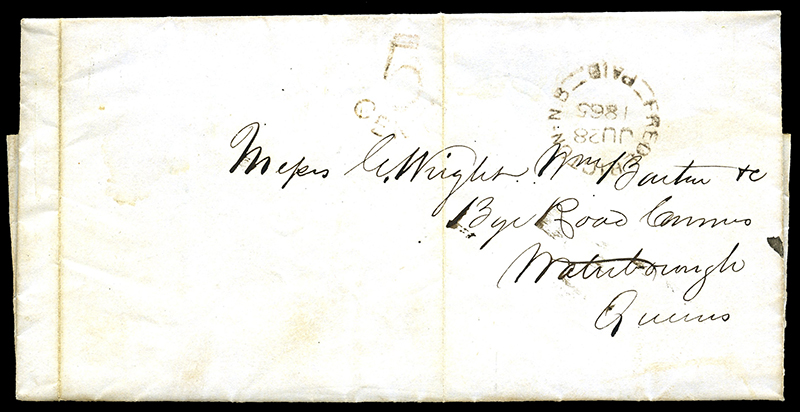 5
CE
FREDERICTON N.B
PAID
JU 28
1865
Messrs G. Wright Wm Barton &c
Bye Road Comrs
Waterborough
Queens